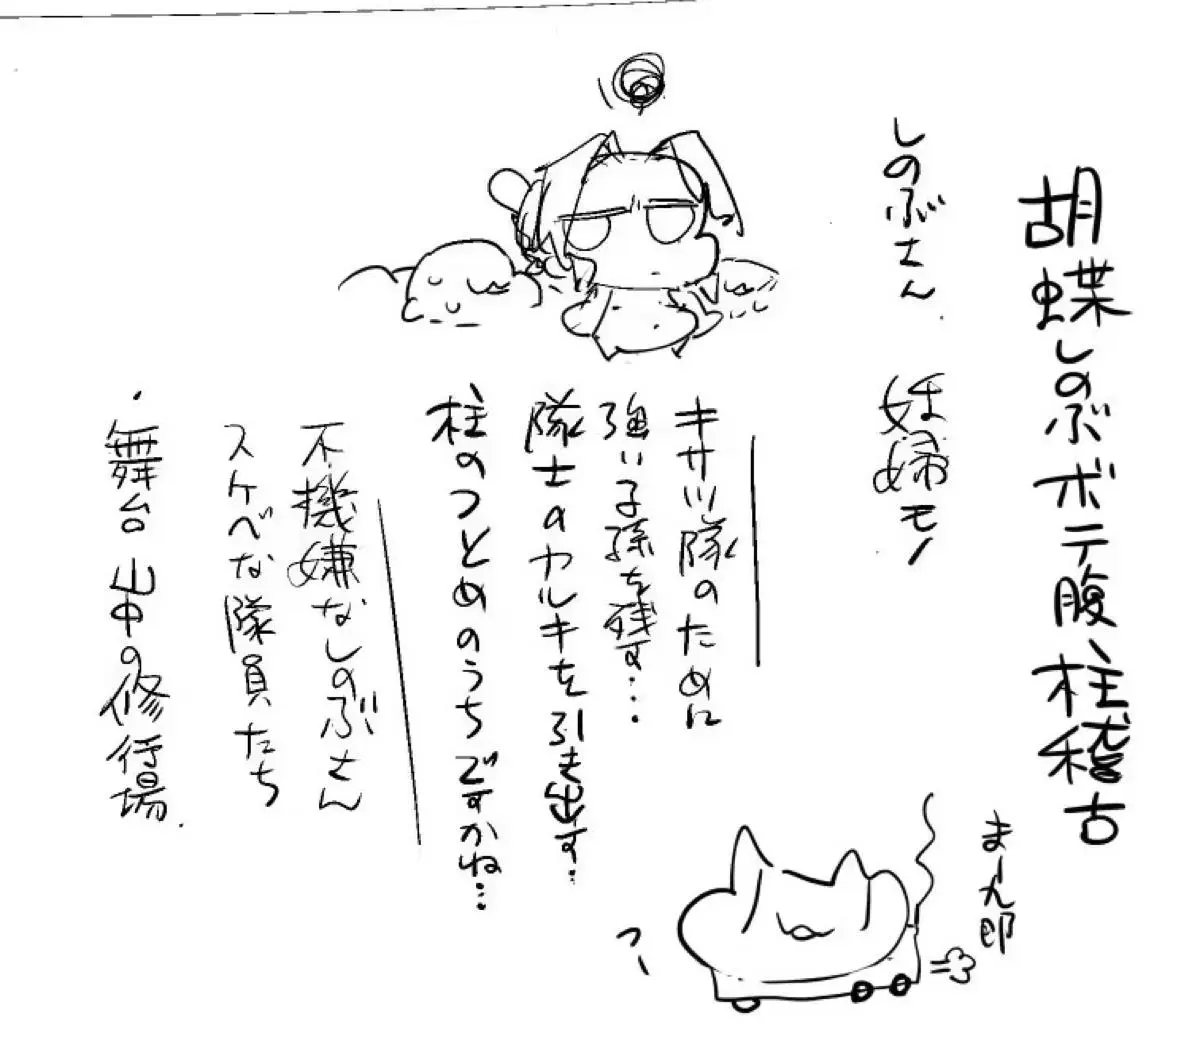 胡蝶しのぶボテ腹柱稽古
しのぶさん
妊婦モノ
キサツ隊のために
強い子孫を残す…
隊士のヤルキを引き出す…
柱のつとめのうちですかね…
不機嫌なしのぶさん
スケベな隊員たち
・舞台 山中の修行場.
まー九郎